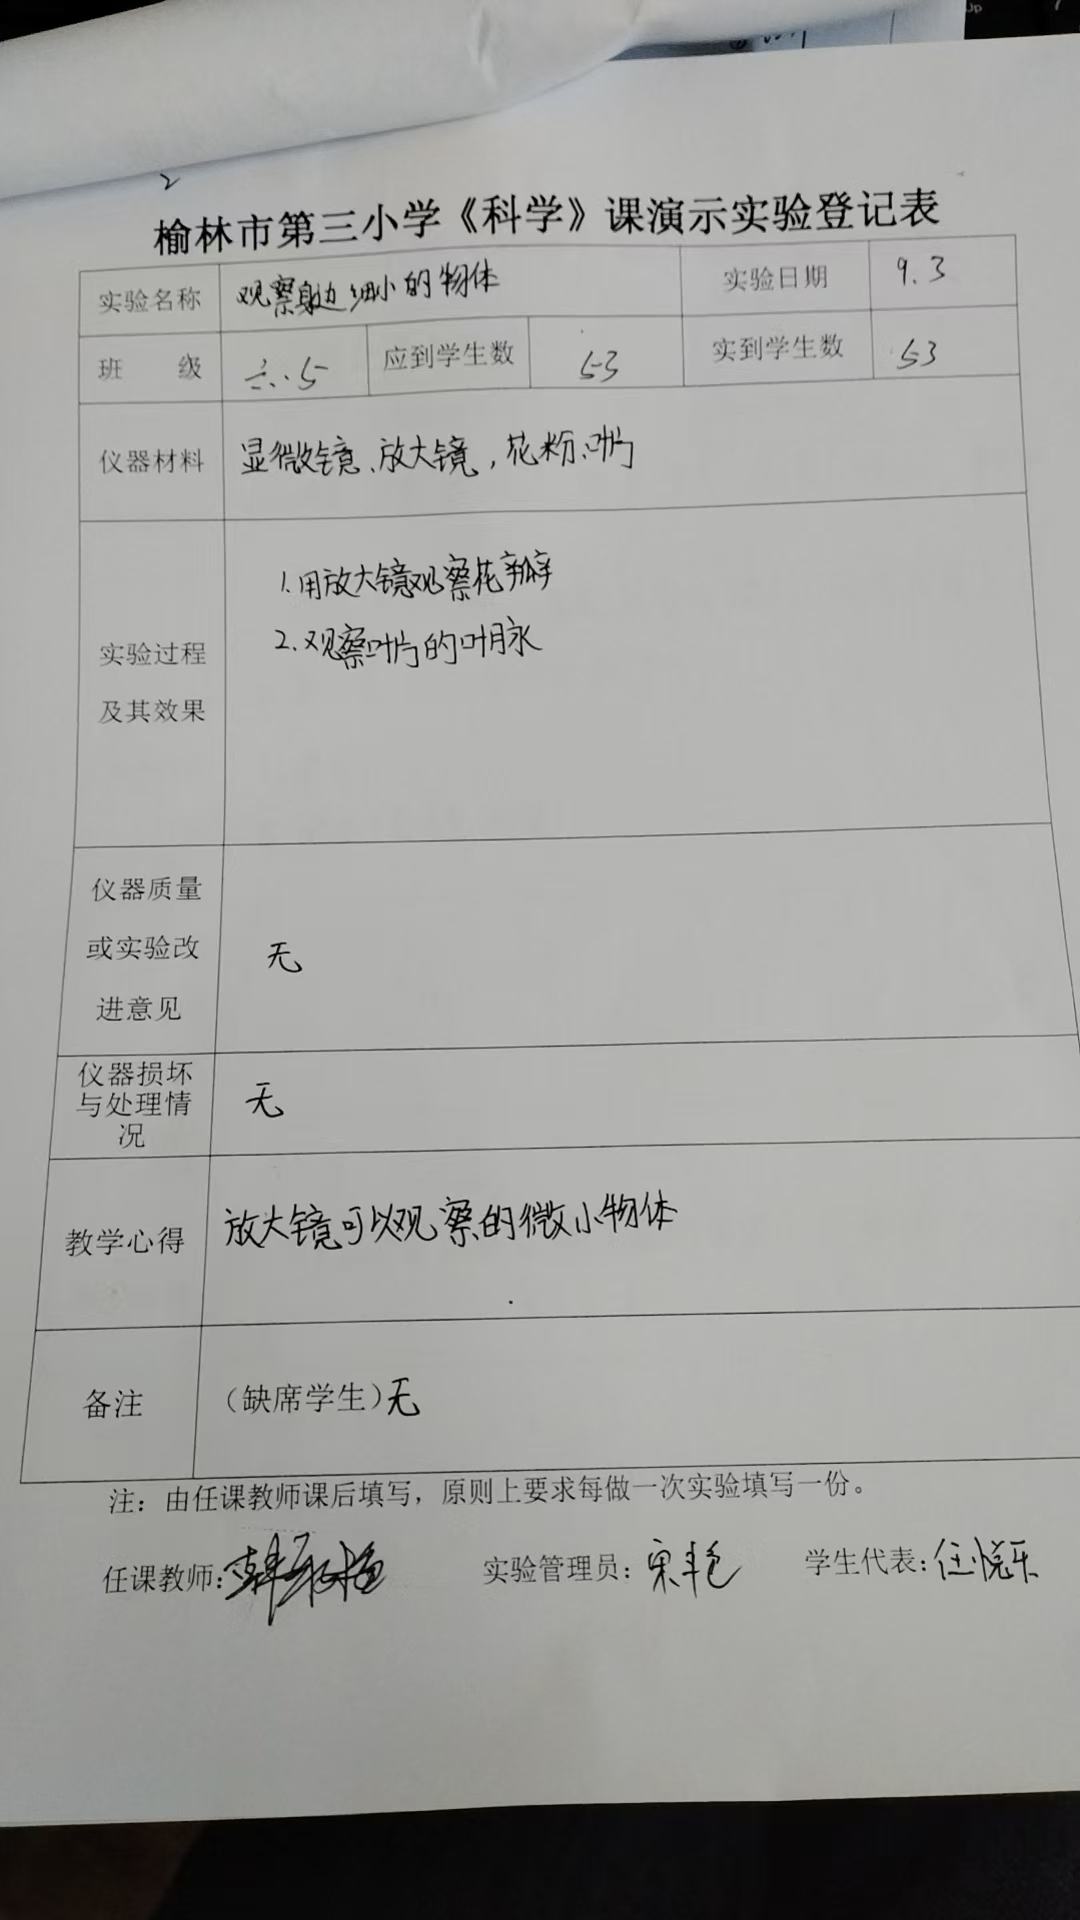 2
榆林市第三小学《科学》课演示实验登记表
实验名称 观察身边细小的物体 实验日期 9.3
班 级 六.5 应到学生数 53 实到学生数 53
仪器材料 显微镜、放大镜，花粉、叶片
实验过程
及其效果
1.用放大镜观察花瓣
2.观察叶片的叶脉
仪器质量
或实验改
进意见
无
仪器损坏
与处理情
况
无
教学心得 放大镜可以观察的微小物体
备注 （缺席学生）无
注：由任课教师课后填写，原则上要求每做一次实验填写一份。
任课教师： 实验管理员：宋艳 学生代表：任悦乐